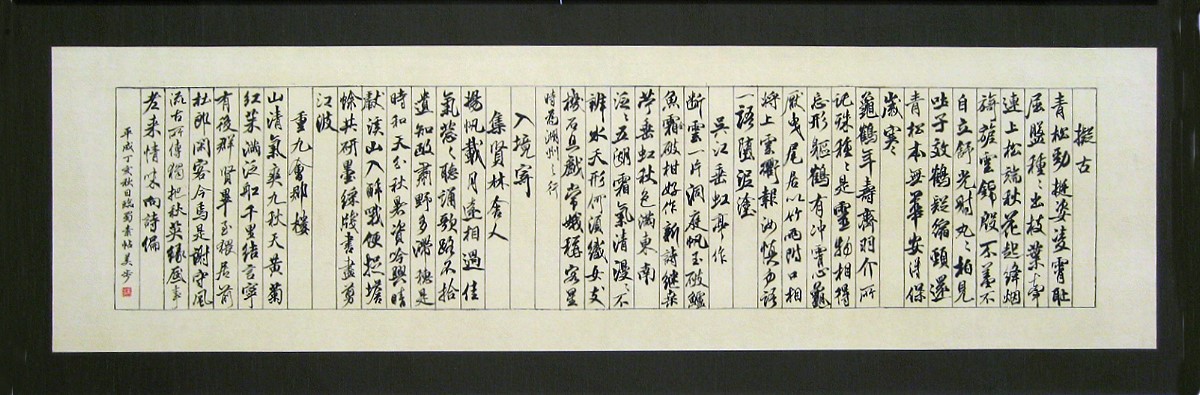 擬古
青松勁挺姿凌霄恥
屈盤種々出枝葉牽
連上松端秋花起絳烟
旖旎雲錦殷不羞不
自立舒光射丸々柏見
吐子效鶴疑縮頸還
青松本無華安得保
歲寒
龜鶴年壽齊羽介所
託殊種々是靈物相得
忘形軀鶴有冲霄心龜
厭曳尾居以竹兩附口相
將上雲衢報汝慎勿語
一語墮泥塗
吳江垂虹亭作
斷雲一片洞庭帆玉破鱸
魚霜破柑好作新詩繼桑
苧垂虹秋色滿東南
泛々五湖霜氣清漫々不
辨水天形何須織女支
機石且戲常娥稱客星
時為湖州之行
入境寄
集賢林舍人
揚帆載月遠相過佳
氣蔥々聽誦歌路不拾
遺知政肅野多滯穗是
時和天分秋暑資吟興晴
獻溪山入醉戰便捉蟾
蜍共研墨綵牋書盡剪
江波
重九會郡樓
山清氣爽九秋天黃菊
紅茱滿泛船千里結言寧
有後群賢畢至猥居前
杜郎閑客今焉是謝守風
流古所傳獨把秋英緣底事
老來情味向詩偏
平成丁亥秋日臨蜀素帖 美